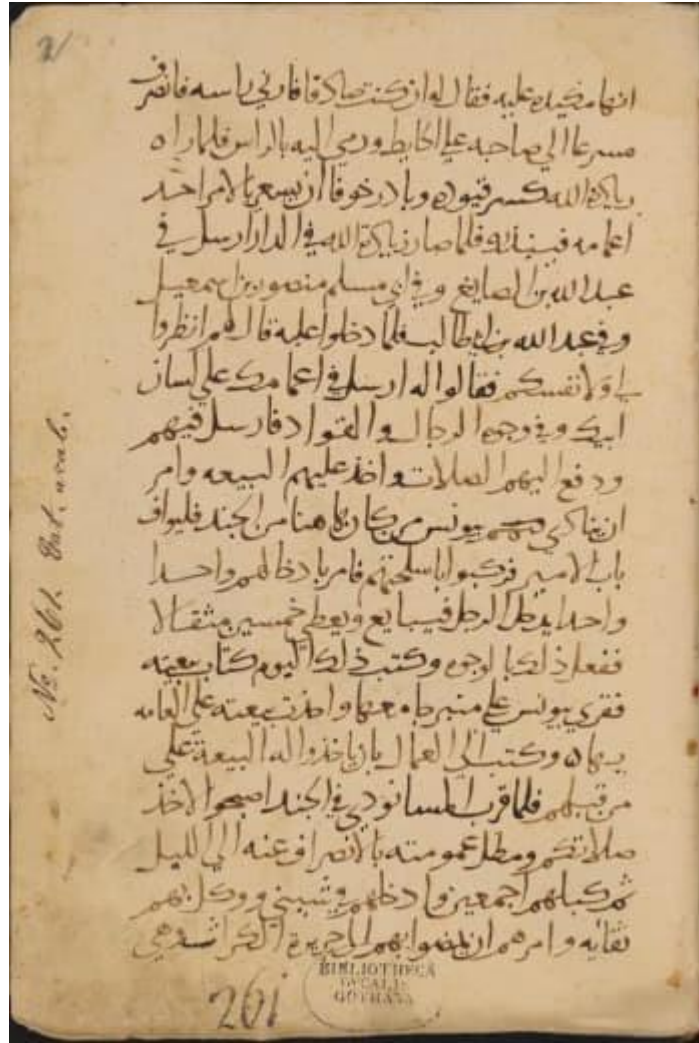 2
انها مكيده عليه فقال له ان كنت صادقا فاتني براسه فانصرف
مسرعا الي صاحبه علي الحايط ورمي اليه بالراس فلما راه
زيادة الله كسر قيوده وبادر خوفا ان يسعر بالامر احد
اعمامه فلما صار زيادة الله في الدار ارسل في
عبد الله بن الصايغ وفي ابي مسلم منصور بن اسمعيل
وفي عبد الله بن ابي طالب فلما دخلوا عليه قال لهم انظروا
لي ولانفسكم فقالوا له ارسل في اعمامك علي لسان
ابيك وفي وجوه الرجال والقواد فارسل فيهم
ودفع اليهم الصلات واخذ عليهم البيعه وامر
ان ينادي بتونس من كان هاهنا من الجند فليواف
باب الامير فركبوا باسلحتهم فامر بادخالهم واحدا
واحدا يدخل الرجل فيبايع ويعطي خمسين مثقالا
ففعل ذلك بالوجوه وكتب ذلك اليوم كتاب بيعته
فقري بتونس علي منبر جامعها واخذت بيعته علي العامه
بها وكتب الي العمال بان ياخذوا له البيعة علي
من قبلهم فلما قرب المسا نودي في الجند اصبحوا لاخذ
صلاتكم ومطل عمومته بالانصراف عنه الي الليل
ثم كبلهم اجمعين وادخلهم في شيني ووكل بهم
ثقاته وامرهم ان يمضوا بهم الي جزيرة الكراث وهي
No. 261. Cat. arab.
261
BIBLIOTHECA
DUCALIS
GOTHANA